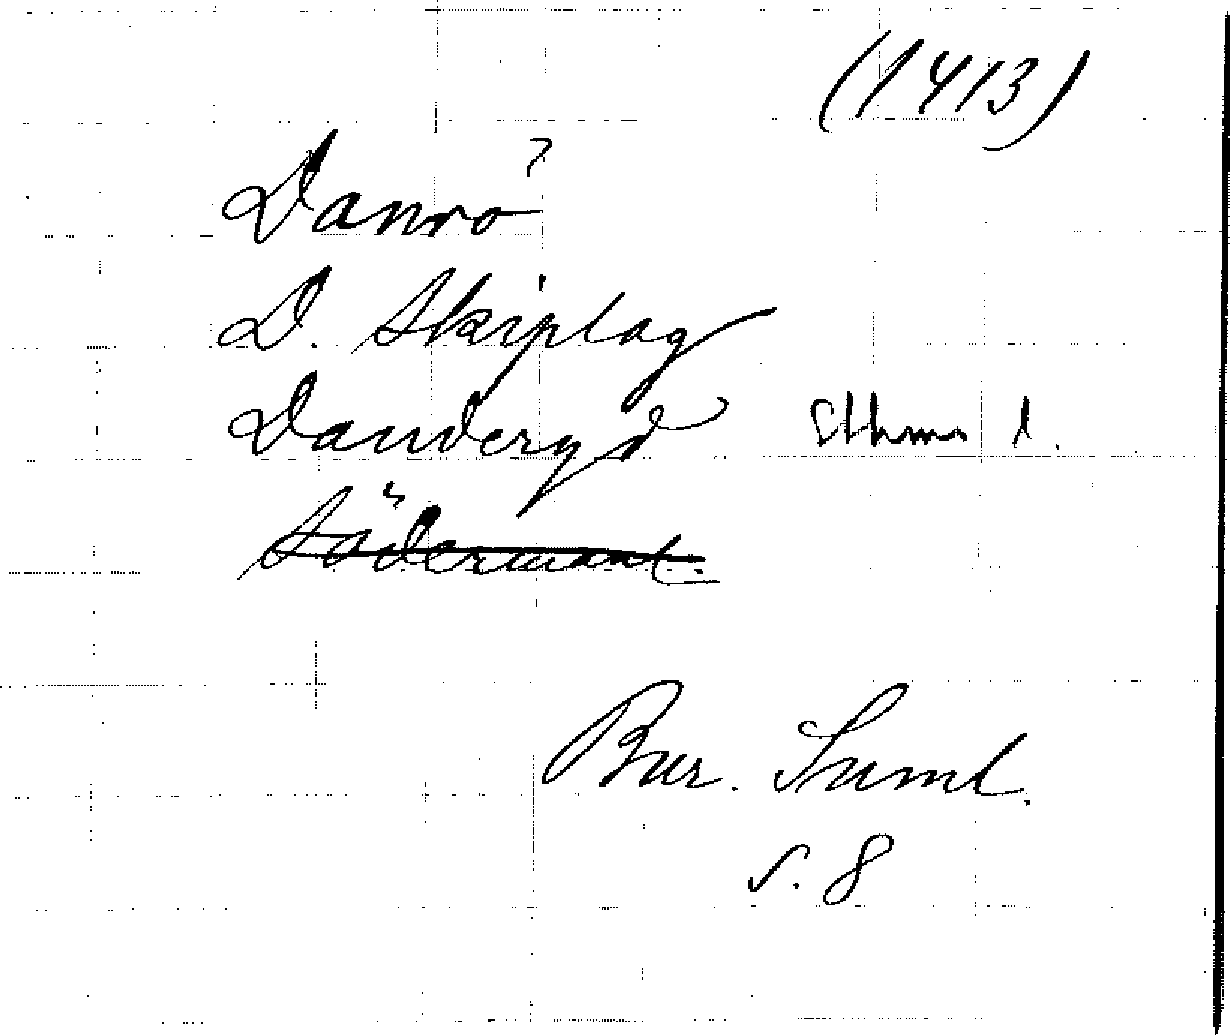 (1413)
Danrö
D. Skiplag
Danderyd Sthms l.
Södermanl.
Bur. Saml.
s. 8